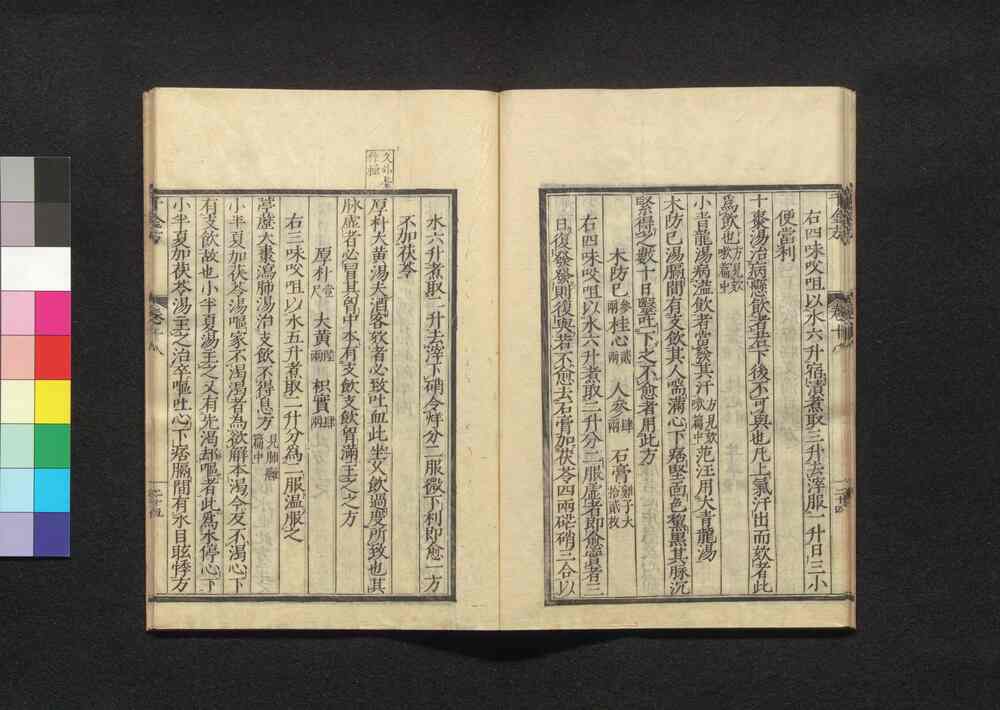 右四味㕮咀以水六升宿漬煮取三升去滓服一升日三小
便當利
十棗湯治病懸飲者若下後不可與也凡上氣汗出而欬者此
為飲也方見欬嗽篇中
小青龍湯病溢飲者當發其汗方見欬嗽篇中范汪用大青龍湯
木防己湯膈間有支飲其人喘滿心下痞堅面色黧黑其脉沉
緊得之數十日醫吐下之不愈者用此方
木防己參兩桂心貳兩人參肆兩石膏雞子大拾貳枚
右四味㕮咀以水六升煮取二升分二服虛者即愈實者三
日復發發則復與若不愈去石膏加茯苓四兩硭硝三合以
水六升煮取二升去滓下硝令烊分二服微下利即愈一方
不加茯苓
厚朴大黃湯夫酒客欬者必致吐血此坐久飲過度所致也其
脉虛者必冒其胷中本有支飲支飲胷滿主之之方
厚朴壹尺大黃陸兩枳實肆兩
右三味㕮咀以水五升煮取二升分為二服溫服之
葶藶大棗瀉肺湯治支飲不得息方見肺癰篇中
小半夏加茯苓湯嘔家不渴渴者為欲解本渴今反不渴心下
有支飲故也小半夏湯主之又有先渴却嘔者此為水停心下
小半夏加茯苓湯主之治卒嘔吐心下痞膈間有水目眩悸方